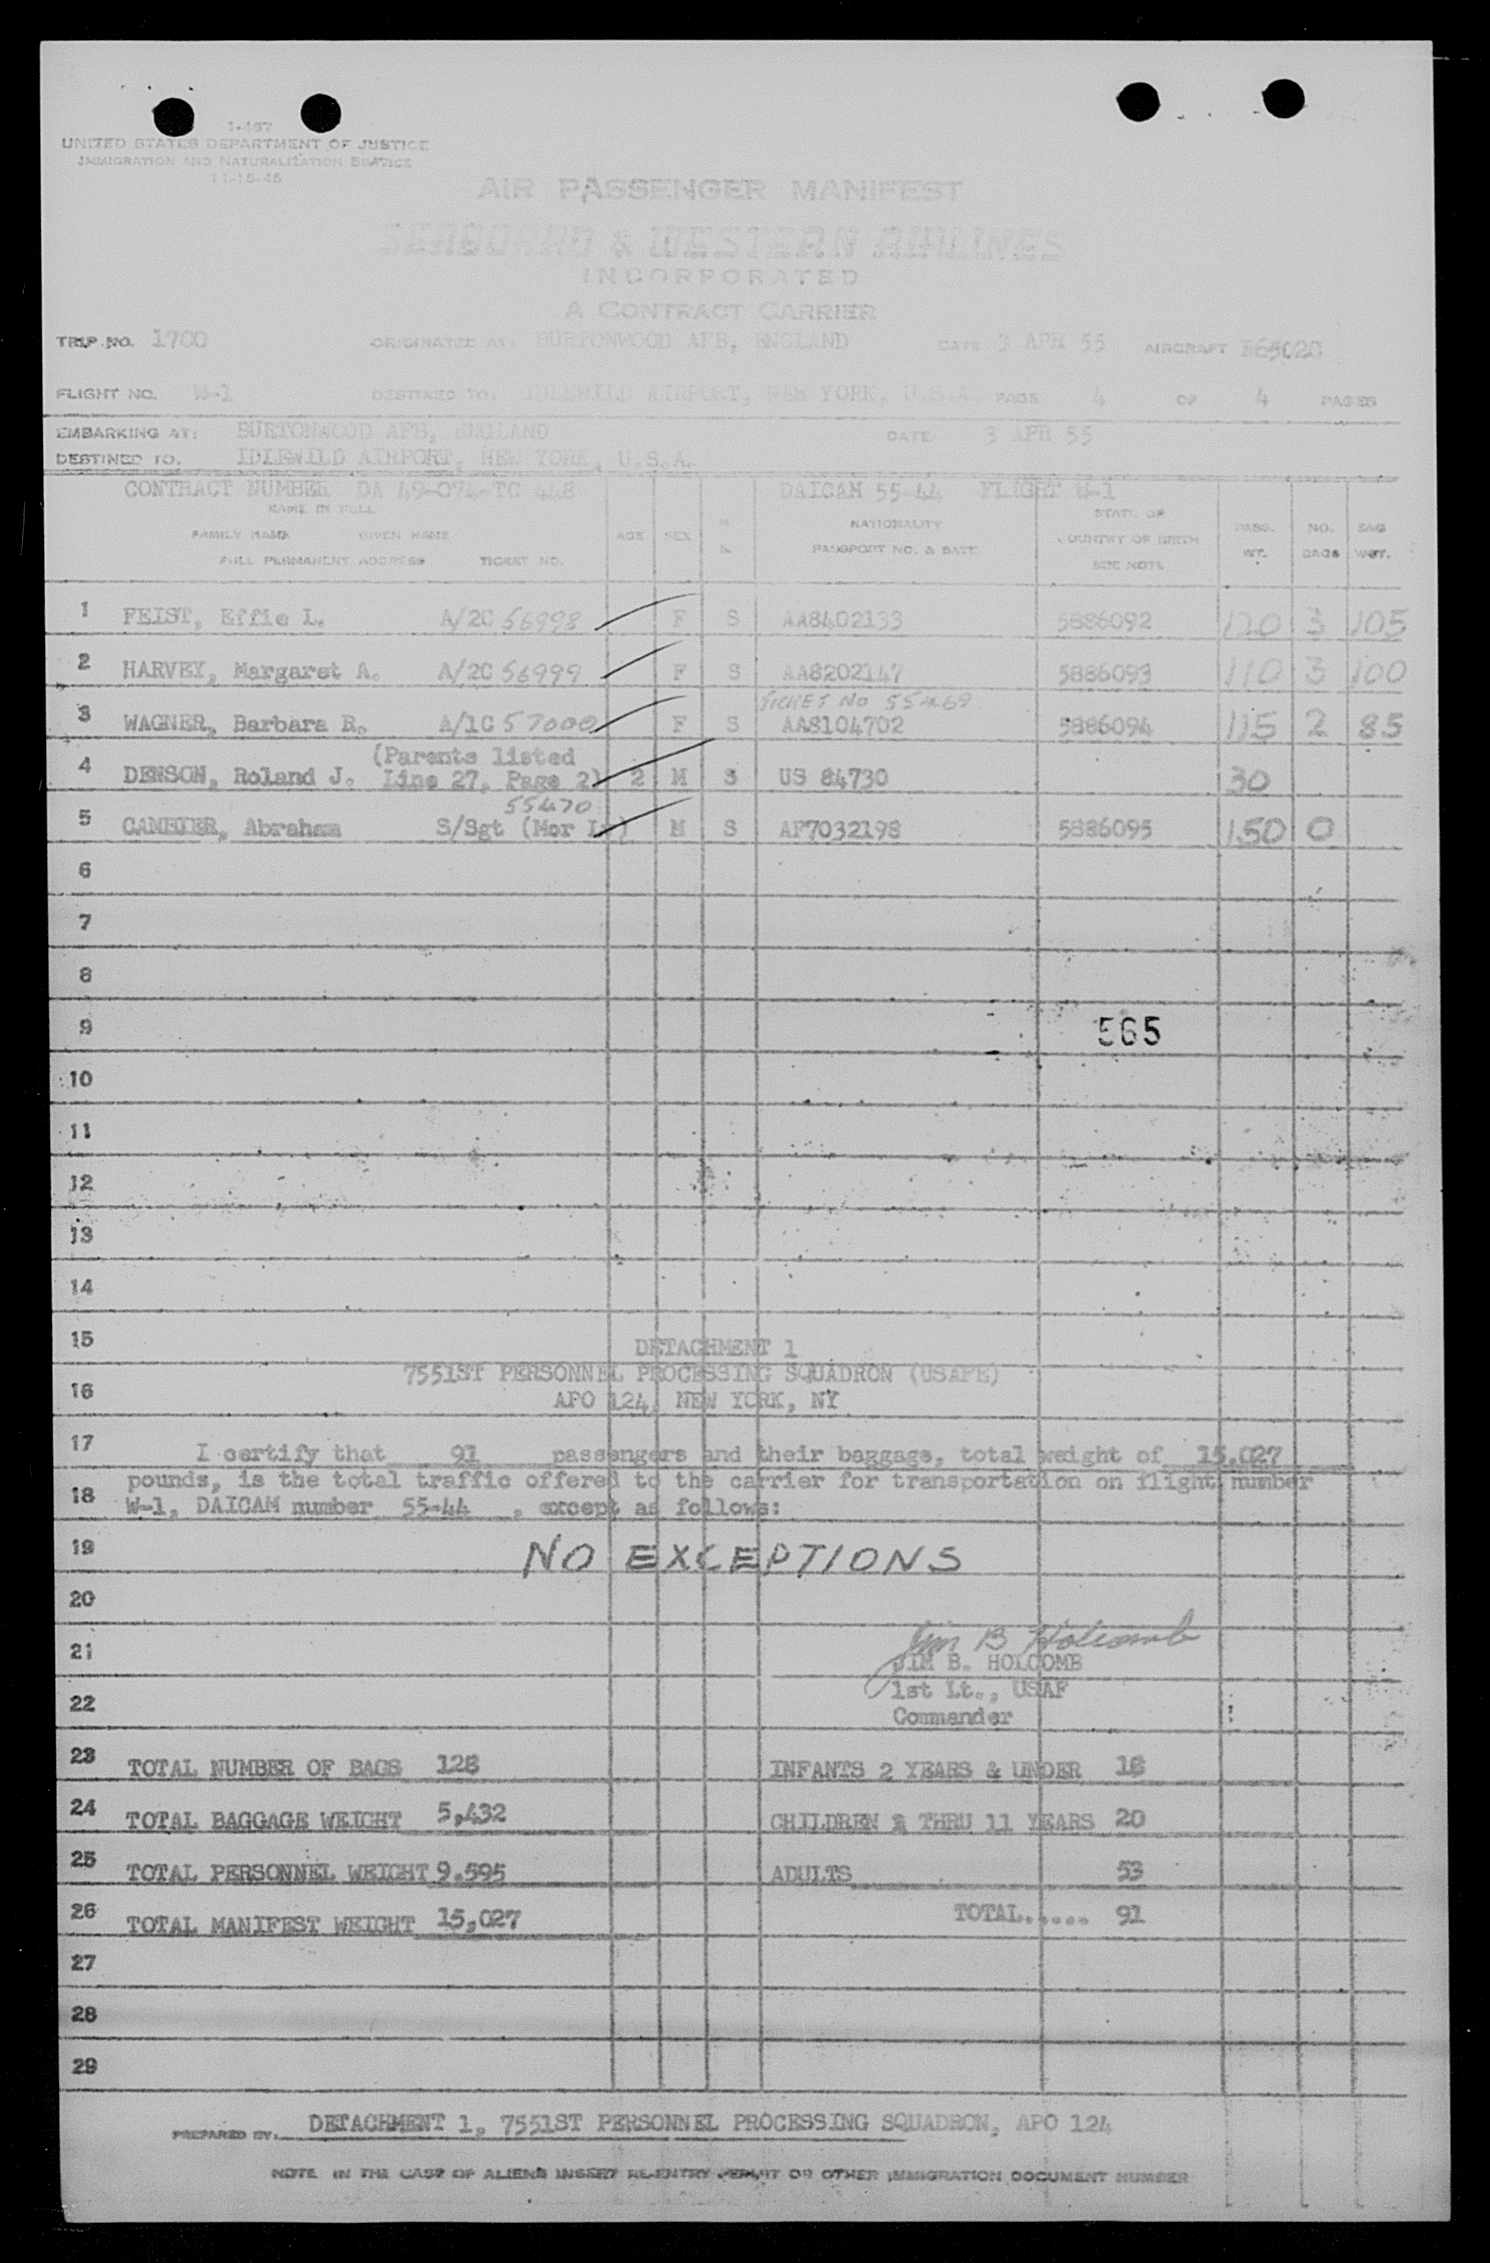 I-467
UNITED STATES DEPARTMENT OF JUSTICE
IMMIGRATION AND NATURALIZATION SERVICE
11-15-45
AIR PASSENGER MANIFEST
SEABOARD & WESTERN AIRLINES
INCORPORATED
A CONTRACT CARRIER
TRIP NO. 1700 ORIGINATED AT: BURTONWOOD AFB, ENGLAND DATE 3 APR 55 AIRCRAFT
FLIGHT NO. W-1 DESTINED TO: IDLEWILD AIRPORT, NEW YORK, U.S.A. PAGE 4 OF 4 PAGES
EMBARKING AT: BURTONWOOD AFB, ENGLAND DATE 3 APR 55
DESTINED TO. IDLEWILD AIRPORT, NEW YORK, U.S.A.
CONTRACT NUMBER DA 49-074-TC 448 DAICAM 55-44 FLIGHT W-1
NAME IN FULL
FAMILY NAME GIVEN NAME AGE SEX NATIONALITY STATE OR PASS. NO. BAG
FULL PERMANENT ADDRESS TICKET NO. PASSPORT NO. & DATE COUNTRY OF BIRTH WT. BAGS WGT.
SEE NOTE
1 FEIST, Effie L. A/2C 56998 F S AA8402133 5886092 120 3 105
2 HARVEY, Margaret A. A/2C 56999 F S AA8202147 5886093 110 3 100
TICKET NO 55469
3 WAGNER, Barbara R. A/1C 57000 F S AA8104702 5886094 115 2 85
(Parents listed
4 DENSON, Roland J. Line 27, Page 2) 2 M S US 84730 30
55470
5 CAMBIER, Abraham S/Sgt (Mor Lv) M S AF7032198 5886095 150 0
6
7
8
9 565
10
11
12
13
14
15 DETACHMENT 1
7551ST PERSONNEL PROCESSING SQUADRON (USAFE)
16 APO 124, NEW YORK, NY
17 I certify that 91 passengers and their baggage, total weight of 15,027
pounds, is the total traffic offered to the carrier for transportation on flight number
18 W-1, DAICAM number 55-44, except as follows:
19 NO EXCEPTIONS
20
Jim B Holcomb
21 JIM B. HOLCOMB
1st Lt., USAF
22 Commander
23 TOTAL NUMBER OF BAGS 128 INFANTS 2 YEARS & UNDER 18
24 TOTAL BAGGAGE WEIGHT 5,432 CHILDREN 2 THRU 11 YEARS 20
25 TOTAL PERSONNEL WEIGHT 9.595 ADULTS 53
26 TOTAL MANIFEST WEIGHT 15,027 TOTAL..... 91
27
28
29
PREPARED BY. DETACHMENT 1, 7551ST PERSONNEL PROCESSING SQUADRON, APO 124
NOTE IN THE CASE OF ALIENS INSERT RE-ENTRY PERMIT OR OTHER IMMIGRATION DOCUMENT NUMBER